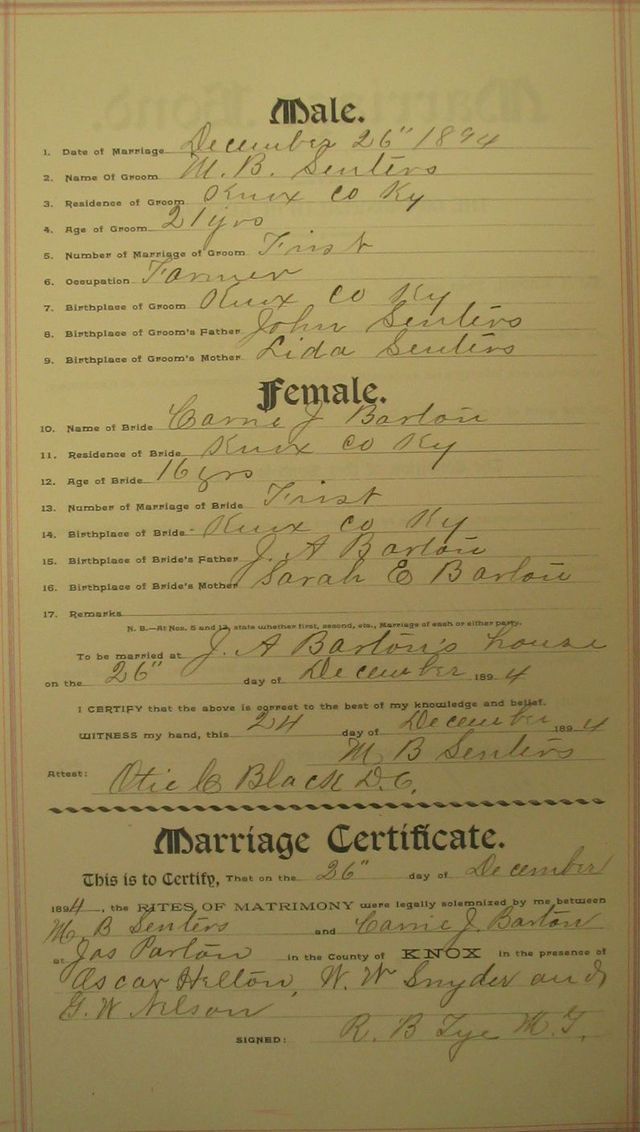 Male.
1. Date of Marriage December 26" 1894
2. Name Of Groom M. B. Senters
3. Residence of Groom Knox Co Ky
4. Age of Groom 21 yrs
5. Number of Marriage of Groom First
6. Occupation Farmer
7. Birthplace of Groom Knox Co Ky
8. Birthplace of Groom's Father John Senters
9. Birthplace of Groom's Mother Lida Senters
Female.
10. Name of Bride Carrie J Barton
11. Residence of Bride Knox Co Ky
12. Age of Bride 16 yrs
13. Number of Marriage of Bride First
14. Birthplace of Bride Knox Co Ky
15. Birthplace of Bride's Father J. A Barton
16. Birthplace of Bride's Mother Sarah E Barton
17. Remarks
N. B.—At Nos. 5 and 13, state whether first, second, etc., Marriage of each or either party.
To be married at J. A Barton's house
on the 26" day of December 1894
I CERTIFY that the above is correct to the best of my knowledge and belief.
WITNESS my hand, this 24 day of December 1894
M B Senters
Attest: Otie C Black D.C.
Marriage Certificate.
This is to Certify, That on the 26" day of December
1894, the RITES OF MATRIMONY were legally solemnized by me between
M, B Senters and Carrie J. Barton
at Jas Parton in the County of KNOX in the presence of
Oscar Helton, W. W Snyder and
G. W Nelson
SIGNED: R. B Tye M. G,